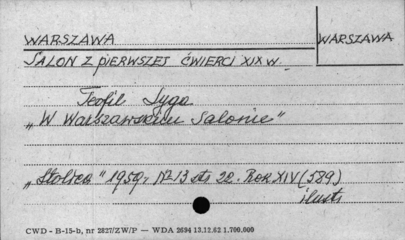 WARSZAWA
WARSZAWA
SALON Z PIERWSZEJ ĆWIERCI XIX W.
Teofil Syga
„W Warszawskim Salonie"
„Stolica" 1959 r. Nr 13 str 22. Rok XIV (589)
ilustr
CWD - B-15-b, nr 2827/ZW/P — WDA 2694 13.12.62 1.700.000